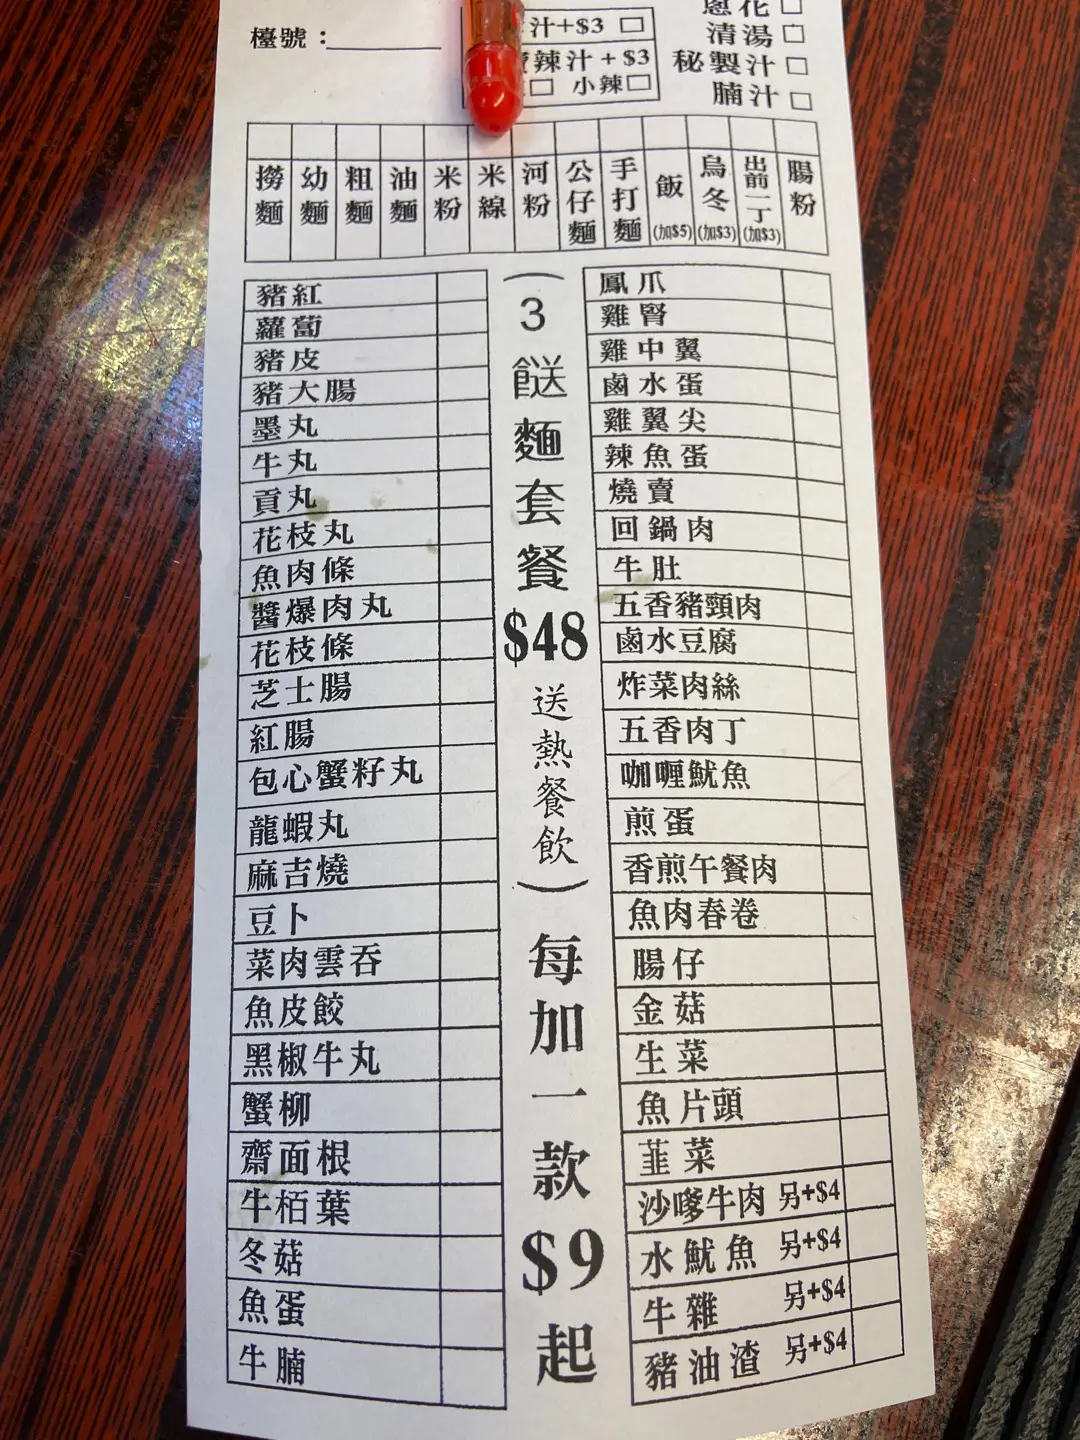 檯號：
汁+$3 □
辣汁+$3
□ 小辣□
蔥花 □
清湯 □
秘製汁 □
腩汁 □
撈麵
幼麵
粗麵
油麵
米粉
米線
河粉
公仔麵
手打麵
飯(加$5)
烏冬(加$3)
出前一丁(加$3)
腸粉
豬紅
蘿蔔
豬皮
豬大腸
墨丸
牛丸
貢丸
花枝丸
魚肉條
醬爆肉丸
花枝條
芝士腸
紅腸
包心蟹籽丸
龍蝦丸
麻吉燒
豆卜
菜肉雲吞
魚皮餃
黑椒牛丸
蟹柳
齋面根
牛栢葉
冬菇
魚蛋
牛腩
（3餸麵套餐$48送熱餐飲）每加一款$9起
鳳爪
雞腎
雞中翼
鹵水蛋
雞翼尖
辣魚蛋
燒賣
回鍋肉
牛肚
五香豬頸肉
鹵水豆腐
炸菜肉絲
五香肉丁
咖喱魷魚
煎蛋
香煎午餐肉
魚肉春卷
腸仔
金菇
生菜
魚片頭
韮菜
沙嗲牛肉 另+$4
水魷魚 另+$4
牛雜 另+$4
豬油渣 另+$4